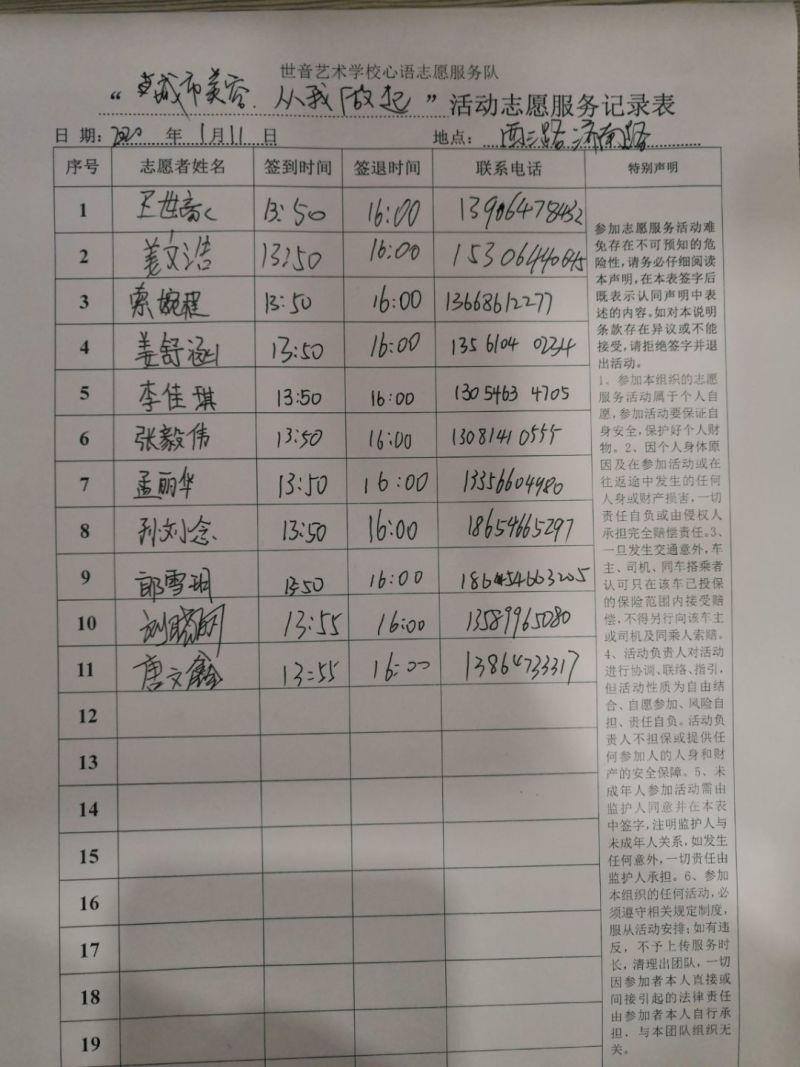 世音艺术学校心语志愿服务队
“城市美容 从我做起”活动志愿服务记录表
日期:2020年1月11日 地点:西二路 济南路
序号 志愿者姓名 签到时间 签退时间 联系电话 特别声明
1 13:50 16:00 13906478432
2 姜文浩 13:50 16:00 15306440645
3 索婉程 13:50 16:00 13668612277
4 姜舒涵 13:50 16:00 135 6104 0234
5 李佳琪 13:50 16:00 1305463 4705
6 张毅伟 13:50 16:00 1308141 0555
7 孟丽华 13:50 16:00 13356604980
8 孙刘念 13:50 16:00 18654665297
9 郎雪珊 13:50 16:00
10 13:55 16:00 13589965080
11 唐文鑫 13:55 16:00 13864733317
12
13
14
15
16
17
18
19
参加志愿服务活动难
免存在不可预知的危
险性,请务必仔细阅读
本声明,在本表签字后
既表示认同声明中表
述的内容。如对本说明
条款存在异议或不能
接受,请拒绝签字并退
出活动。
1、参加本组织的志愿
服务活动属于个人自
愿,参加活动要保证自
身安全,保护好个人财
物。2、因个人身体原
因及在参加活动或在
往返途中发生的任何
人身或财产损害,一切
责任自负或由侵权人
承担完全赔偿责任。3、
一旦发生交通意外,车
主、司机、同车搭乘者
认可只在该车已投保
的保险范围内接受赔
偿,不得另行向该车主
或司机及同乘人索赔。
4、活动负责人对活动
进行协调、联络、指引,
但活动性质为自由结
合、自愿参加、风险自
担、责任自负。活动负
责人不担保或提供任
何参加人的人身和财
产的安全保障。5、未
成年人参加活动需由
监护人同意并在本表
中签字,注明监护人与
未成年人关系,如发生
任何意外,一切责任由
监护人承担。6、参加
本组织的任何活动,必
须遵守相关规定制度,
服从活动安排;如有违
反,不予上传服务时
长,清理出团队,一切
因参加者本人直接或
间接引起的法律责任
由参加者本人自行承
担,与本团队组织无
关。